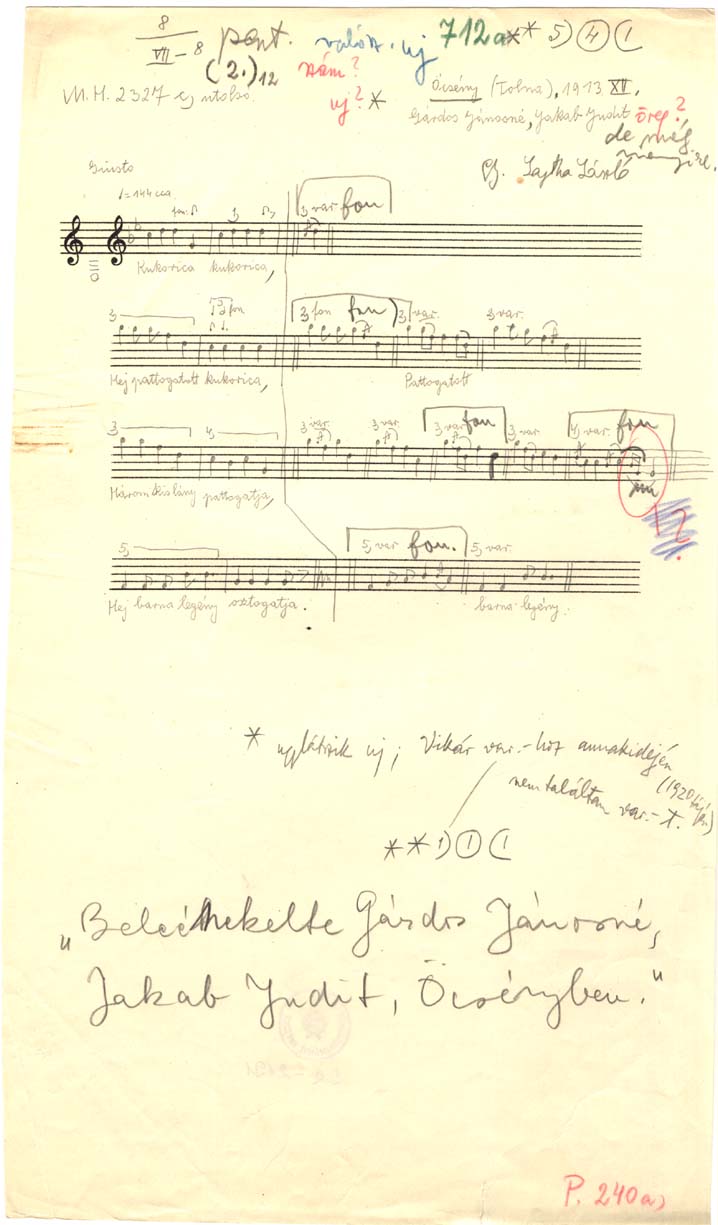 8
VII-8
pont. valósz. uj 712a** 5) (4) (1
(2.)12 szám?
M.H. 2327 c) utolsó. uj? *
Őcsény (Tolna), 1913 XII.
Gárdos Jánosné, Jakab Judit öreg?
de még
Gy. Lajtha László
Giusto
♩=144 cca
fon. 3 3 var. fon
Kukorica kukorica,
3, 3 fon 3, fon fon) 3, var. 3 var.
Hej pattogatott kukorica, Pattogatott
3, 4, 3 var. 3 var. 3 var. fon 3 var. 4, var. fon
Három kislány pattogatja,
?
5, 5, var fon. 5, var.
Hej barna legény osztogatja. barna legény.
* ugylátszik uj; Vikár var.-hoz annakidején
(1920 táján)
nem találtam var.-t.
** 1) (1) (1
„Beleénekelte Gárdos Jánosné,
Jakab Judit, Őcsényben."
P. 240a)